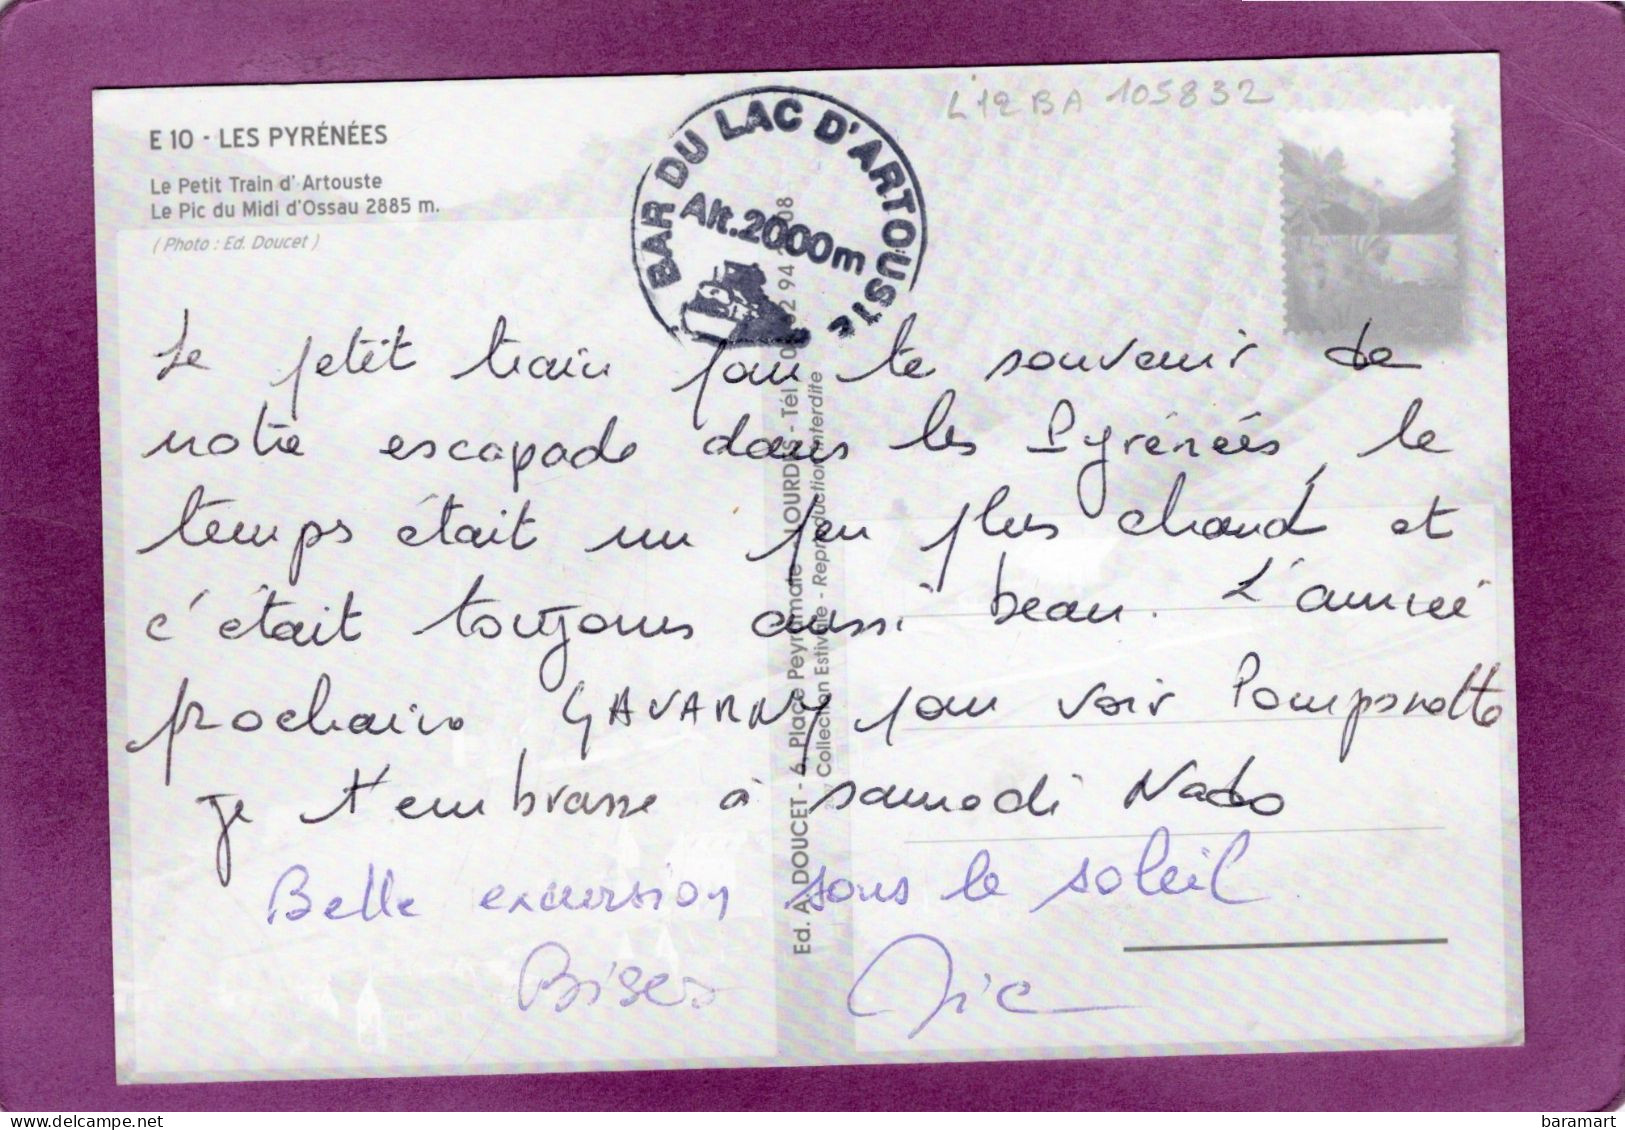 L12BA 105832
E 10 - LES PYRÉNÉES
Le Petit Train d'Artouste
Le Pic du Midi d'Ossau 2885 m.
( Photo : Ed. Doucet )
BAR DU LAC D'ARTOUSTE
Alt.2000m
Le petit train pour le souvenir de
notre escapade dans les Pyrénées, le
temps était un peu plus chaud et
c'était toujours aussi beau. L'année
prochaine GAVARNY pour voir Pomponette
je t'embrasse à samedi Nado
Belle excursion sous le soleil
Bises
Ed. A. DOUCET - 6, Place Peyramale LOURDES - Tél 94 08
Collection Estivale - Reproduction interdite
baramart
www.delcampe.net